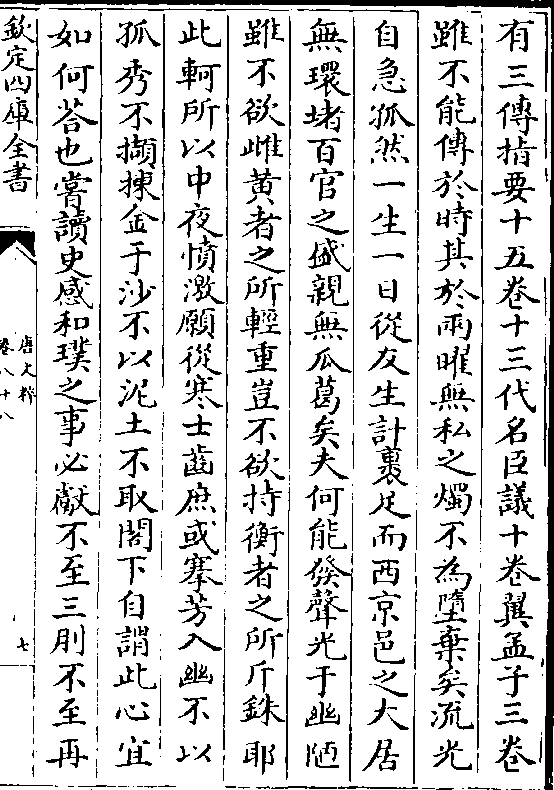 有三傳指要十五卷十三代名臣議十卷翼孟子三卷
雖不能傳於時其於兩曜無私之燭不為墮棄矣流光
自急孤然一生一日從友生計裹足而西京邑之大居
無環堵百官之盛親無瓜葛矣夫何能發聲光于幽陋
雖不欲雌黃者之所輕重豈不欲持衡者之所斤銖耶
此軻所以中夜憤激願從寒士齒庶或搴芳入幽不以
孤秀不擷揀金于沙不以泥土不取閣下自謂此心宜
如何荅也嘗讀史感和璞之事必獻不至三刖不至再
欽定四庫全書
唐文粹
卷八十八
七